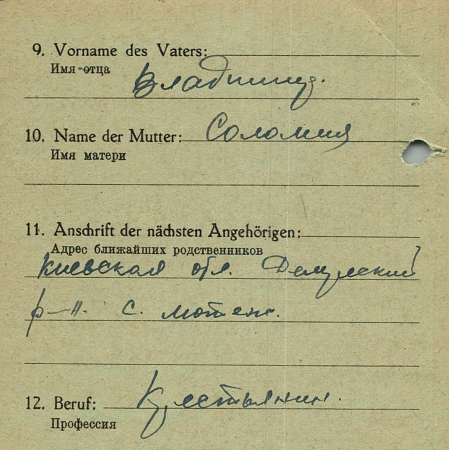 9. Vorname des Vaters:
Имя отца
Владимир.
10. Name der Mutter: Соломия
Имя матери
11. Anschrift der nächsten Angehörigen:
Адрес ближайших родственников
Киевская обл.
р-н. с.
12. Beruf: Крестьянин.
Профессия